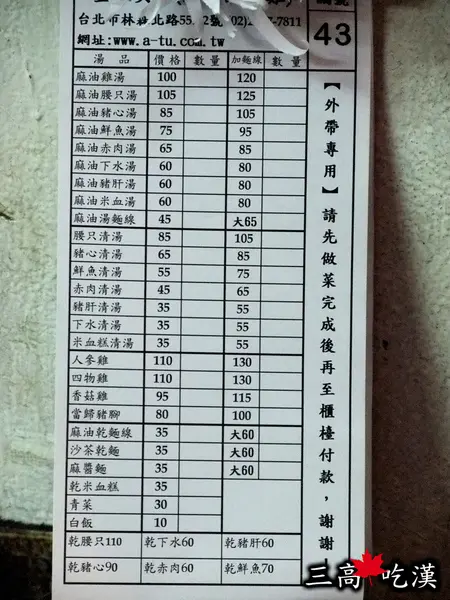 台北市林森北路552號(02)2 7-7811
網址:www.a-tu.com.tw
43
湯品 價格 數量 加麵線 數量
麻油雞湯 100 120
麻油腰只湯 105 125
麻油豬心湯 85 105
麻油鮮魚湯 75 95
麻油赤肉湯 65 85
麻油下水湯 60 80
麻油豬肝湯 60 80
麻油米血湯 60 80
麻油湯麵線 45 大65
腰只清湯 85 105
豬心清湯 65 85
鮮魚清湯 55 75
赤肉清湯 45 65
豬肝清湯 35 55
下水清湯 35 55
米血糕清湯 35 55
人參雞 110 130
四物雞 110 130
香菇雞 95 115
當歸豬腳 80 100
麻油乾麵線 35 大60
沙茶乾麵 35 大60
麻醬麵 35 大60
乾米血糕 35
青菜 30
白飯 10
乾腰只110 乾下水60 乾豬肝60
乾豬心90 乾赤肉60 乾鮮魚70
【外帶專用】請先做菜完成後再至櫃檯付款，謝謝
三高吃漢